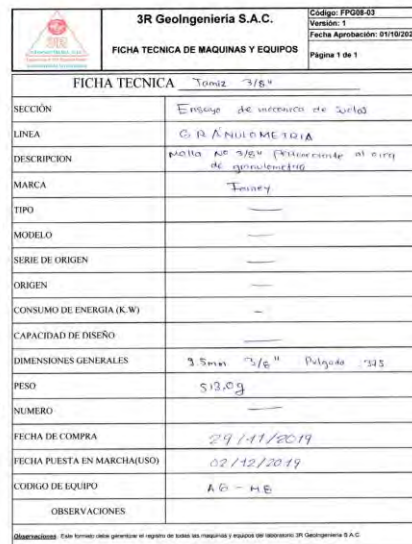 3R GeoIngenieria S.A.C.
FICHA TECNICA DE MAQUINAS Y EQUIPOS
Código: FPG08-03
Versión: 1
Fecha Aprobación: 01/10/202
Página 1 de 1
FICHA TECNICA Tamiz 3/8"
SECCIÓN Ensayo de mecanica de suelos
LINEA GRANULOMETRIA
DESCRIPCION Malla Nº 3/8" Perteneciente al area
de granulometria
MARCA Forney
TIPO —
MODELO —
SERIE DE ORIGEN —
ORIGEN —
CONSUMO DE ENERGIA (K.W) —
CAPACIDAD DE DISEÑO —
DIMENSIONES GENERALES 9.5mm 3/8" Pulgada .375
PESO 513.0g
NUMERO —
FECHA DE COMPRA 29/11/2019
FECHA PUESTA EN MARCHA(USO) 02/12/2019
CODIGO DE EQUIPO AG - M8
OBSERVACIONES
Observaciones: Este formato debe garantizar el registro de todas las maquinas y equipos del laboratorio 3R Geoingenieria S.A.C.